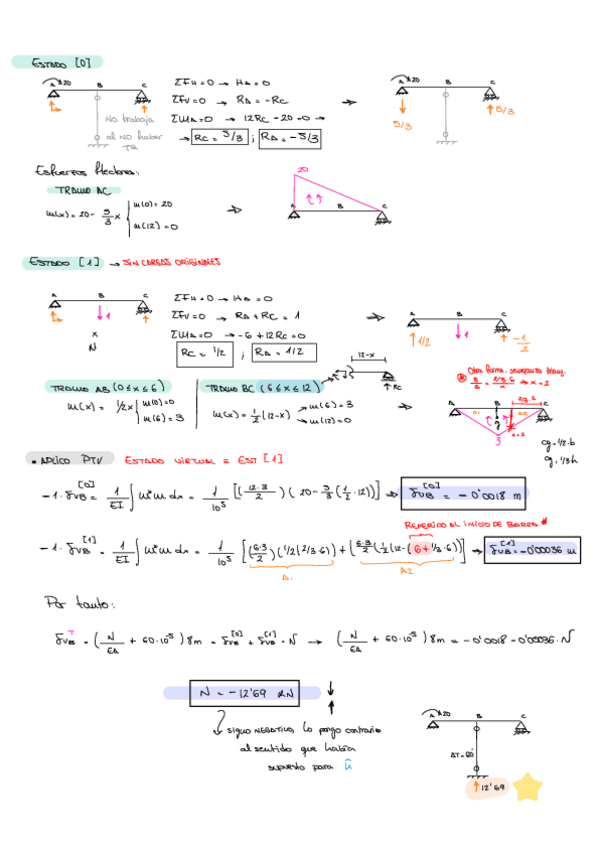 ESTADO [0]
20
A B C
ΣFH=0 → HA=0
ΣFV=0 → RA=-RC
ΣMA=0 → 12RC-20=0 →
→ RC=5/3 ; RA=-5/3
No trabaja
al NO haber
Ta
20
A B C
5/3
5/3
Esfuerzos flectores:
TRAMO AC
M(x)=20-5/3x { M(0)=20
M(12)=0
20
A B C
ESTADO [1] → SIN CARGAS ORIGINALES
A B C
1
x
N
ΣFH=0 → HA=0
ΣFV=0 → RA+RC=1
ΣMA=0 → -6+12RC=0
RC=1/2 ; RA=1/2
A B C
1/2
1
-1/2
12-x
RC
TRAMO AB (0≤x≤6)
M(x)=1/2x { M(0)=0
M(6)=3
TRAMO BC (6≤x≤12)
M(x)=1/2(12-x) → M(6)=3
→ M(12)=0
A B C
3
x=2
cg=1/2·b
cg=1/3h
• APLICO PTV ESTADO VIRTUAL = EST [1]
-1·δVB[0] = 1/EI ∫M°M dx = 1/10⁵ [(12·3/2)(20-5/3(1/2·12))] → δVB[0]=-0'0018 m
REFERIDO AL INICIO DE BARRA
-1·δVB[1] = 1/EI ∫M°M dx = 1/10⁵ [(6·3/2)(1/2(2/3·6))+(6·3/2)(1/2(12-(6+1/3·6)))] → δVB[1]=-0'00036 m
A1
A2
Por tanto:
δVB T = (N/EA + 60·10⁻⁵)8m = δVB[0] + δVB[1]·N → (N/EA + 60·10⁻⁵)8m = -0'0018-0'00036·N
N=-12'69 kN
signo NEGATIVO, lo pongo contrario
al sentido que había
supuesto para
20
A B C
ΔT=60
12'69